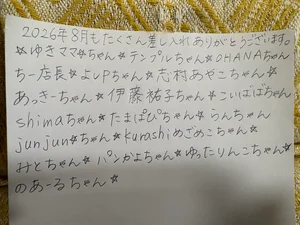 2026年8月もたくさん差し入れありがとうございます。
☆ゆきママ☆ちゃん☆テンプルちゃん☆OHANAちゃん
ちー店長☆よいPちゃん☆志村あやこちゃん☆
あっきーちゃん☆伊藤祐子ちゃん☆こいばばちゃん
shimaちゃん☆たまぴぴちゃん☆らんちゃん
junjun☆ちゃん☆kurashiめざめこちゃん☆
みとちゃん☆パンかよちゃん☆ゆったりんこちゃん☆
のあーるちゃん☆